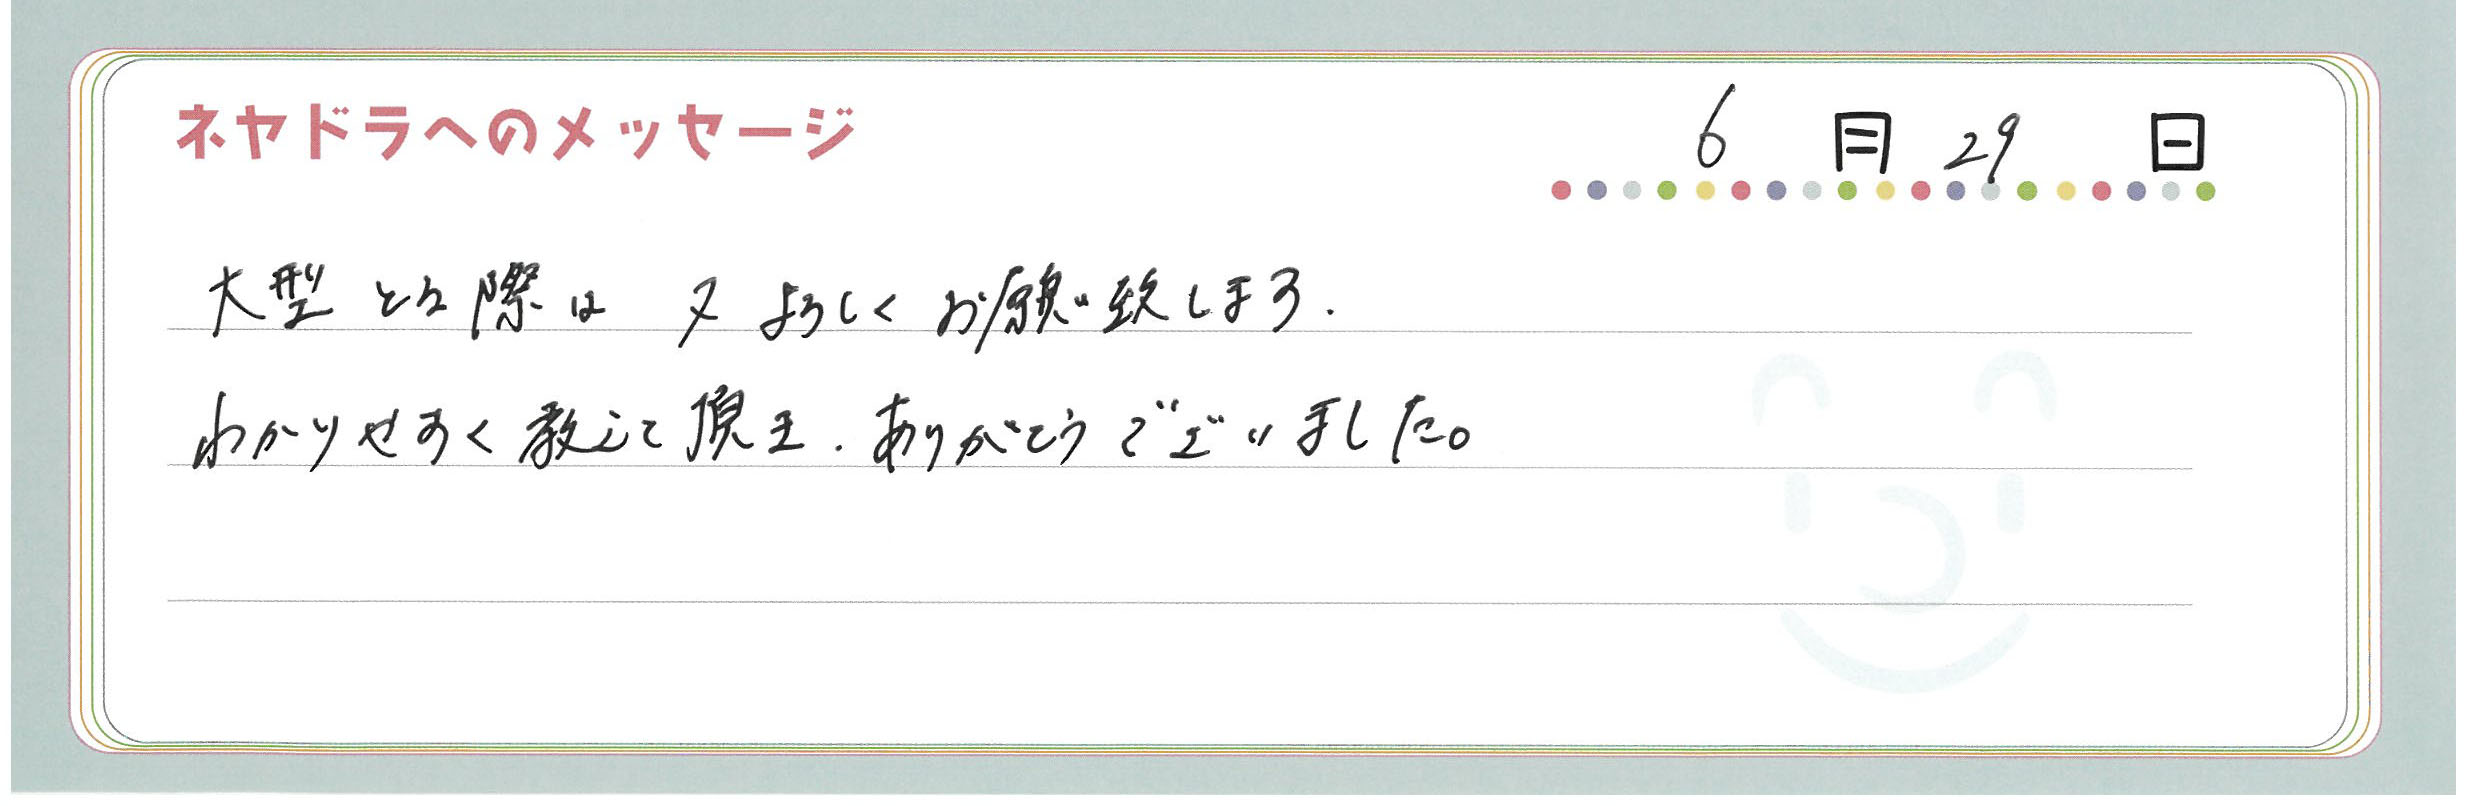 ネヤドラへのメッセージ
6月29日
大型とる際は 又よろしくお願い致します.
わかりやすく教えて頂き.ありがとうございました。